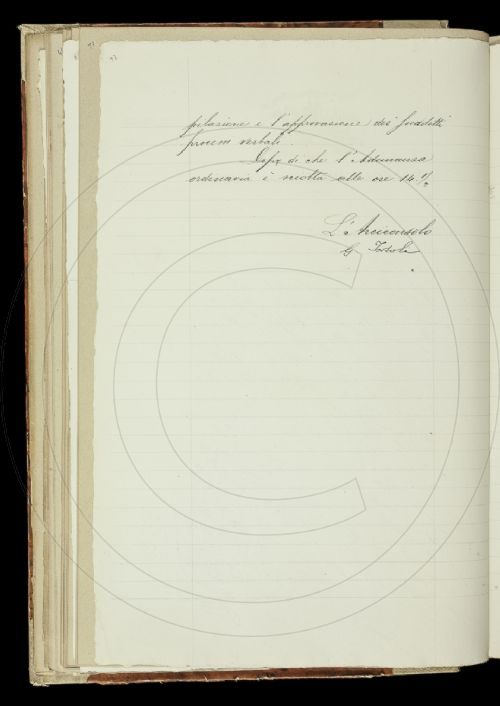 pilazione e l'approvazione dei suddetti
processi verbali.
Dopo di che l'Adunanza
ordinaria è sciolta alle ore 14 1/2
L'Arciconsolo
G. Tortoli